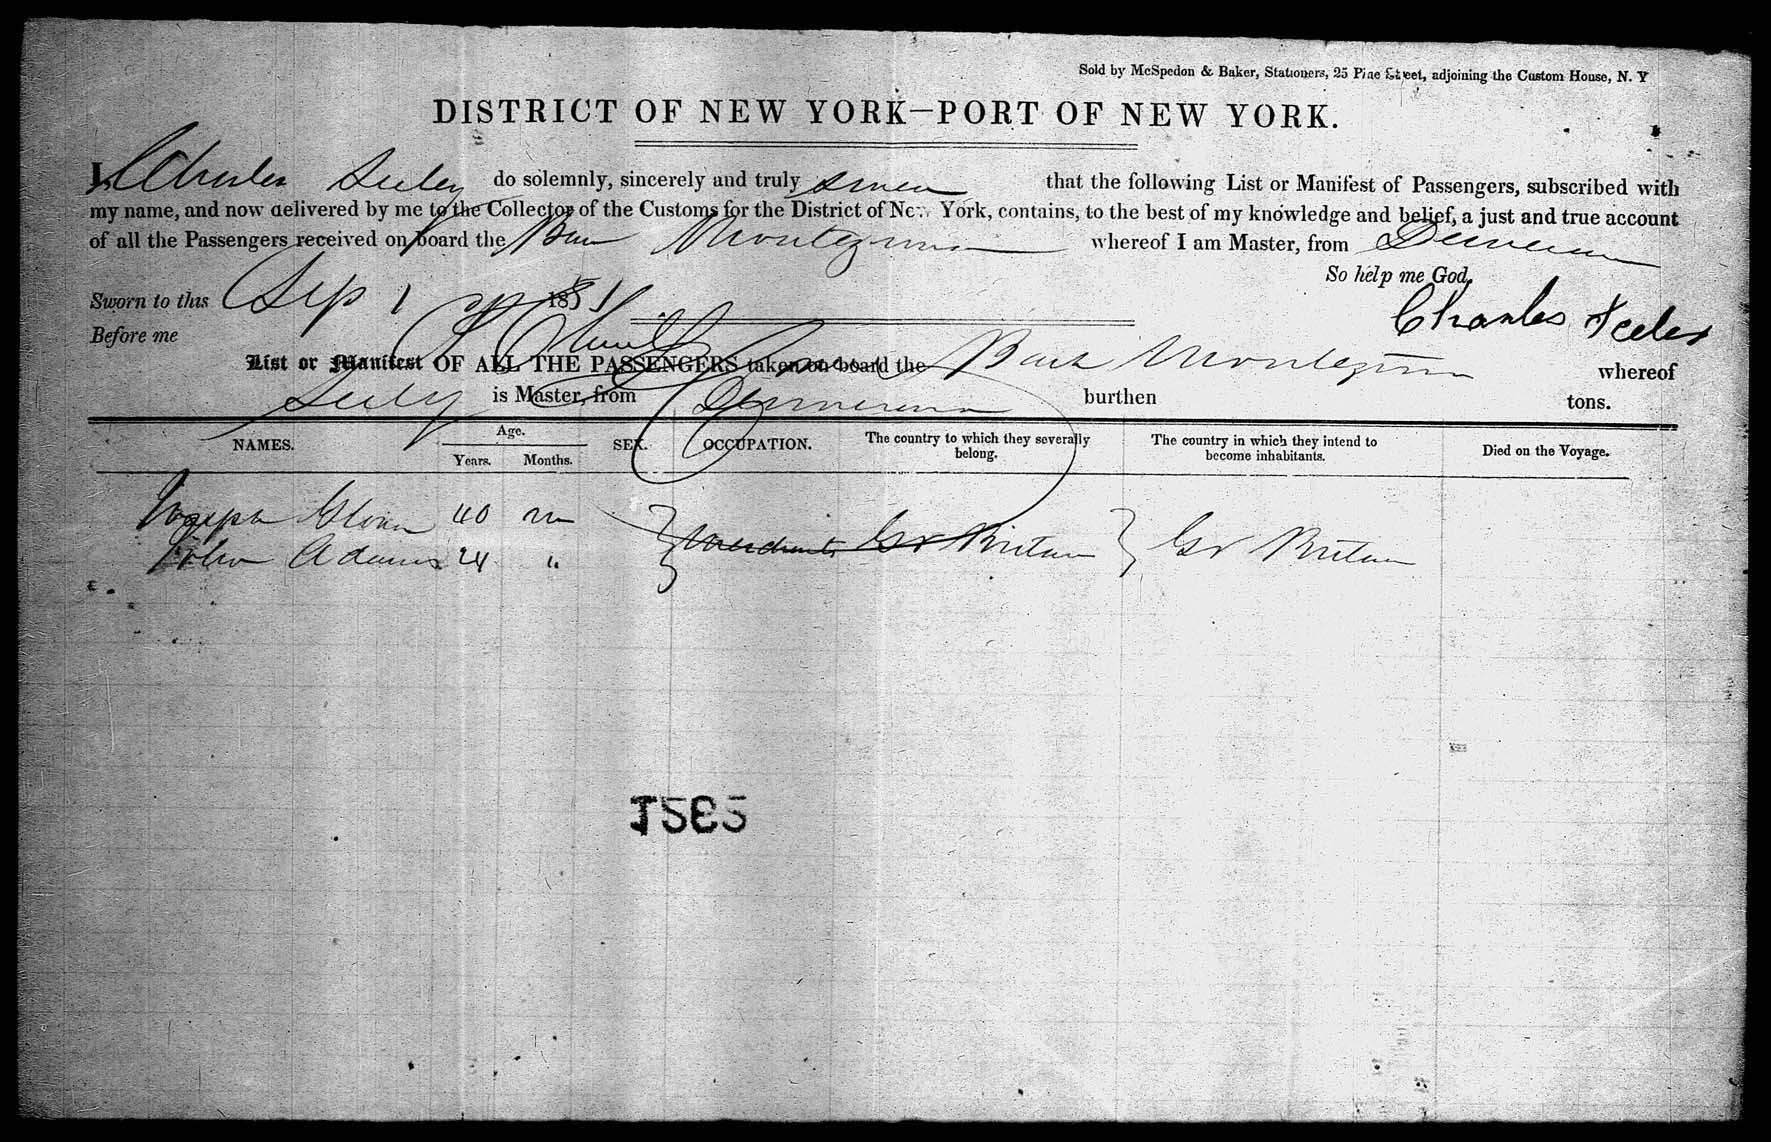 Sold by McSpedon & Baker, Stationers, 25 Pine Street, adjoining the Custom House, N. Y
DISTRICT OF NEW YORK—PORT OF NEW YORK.
I, Charles Seeley do solemnly, sincerely and truly swear that the following List or Manifest of Passengers, subscribed with
my name, and now delivered by me to the Collector of the Customs for the District of New York, contains, to the best of my knowledge and belief, a just and true account
of all the Passengers received on board the Montezuma whereof I am Master, from
So help me God,
Sworn to this Sep 1 1851
Charles Seeley
Before me
List or Manifest OF ALL THE PASSENGERS taken on board the Bark Montezuma whereof
Seeley is Master, from Demerara burthen tons.
NAMES. Age. SEX. OCCUPATION. The country to which they severally belong. The country in which they intend to become inhabitants. Died on the Voyage.
Years. Months.
Joseph 40 m
John Adams 24 " Merchants Gr Britain Gr Britain
1585